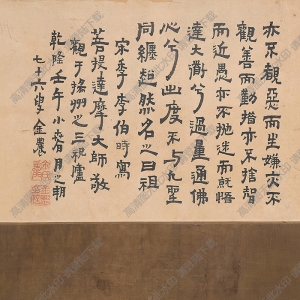 亦不覩惡而生嫌亦不
觀善而勤措亦不捨智
而近愚亦不拋迷而就悟
達大衟兮過量通佛
心兮出度不与凡聖
同纏超然名之曰祖
宋季李伯時寫
菩提達摩大師敬
觀于揚州之三祝庵
乾隆壬午小春月之朝
七十六叟金農